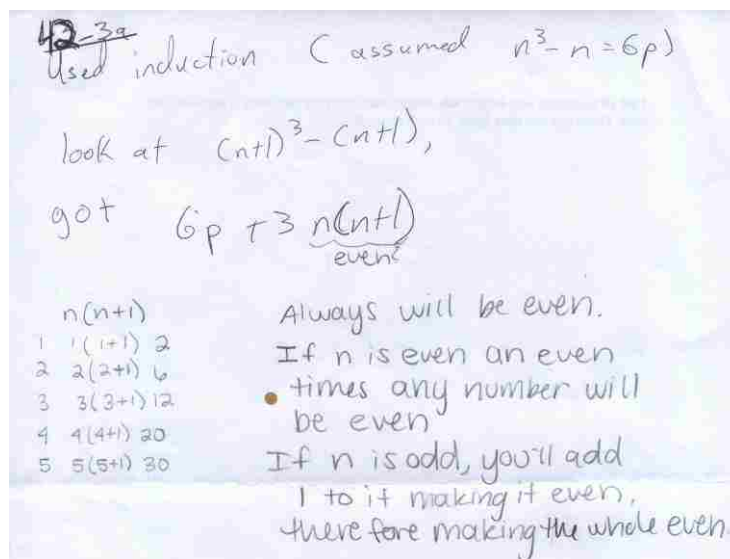 42-3a
Used induction (assumed n³-n=6p)
look at (n+1)³-(n+1),
got 6p+3 n(n+1)
even?
n(n+1)
1 1(1+1) 2
2 2(2+1) 6
3 3(3+1) 12
4 4(4+1) 20
5 5(5+1) 30
Always will be even.
If n is even an even
times any number will
be even
If n is odd, you'll add
1 to it making it even,
therefore making the whole even.